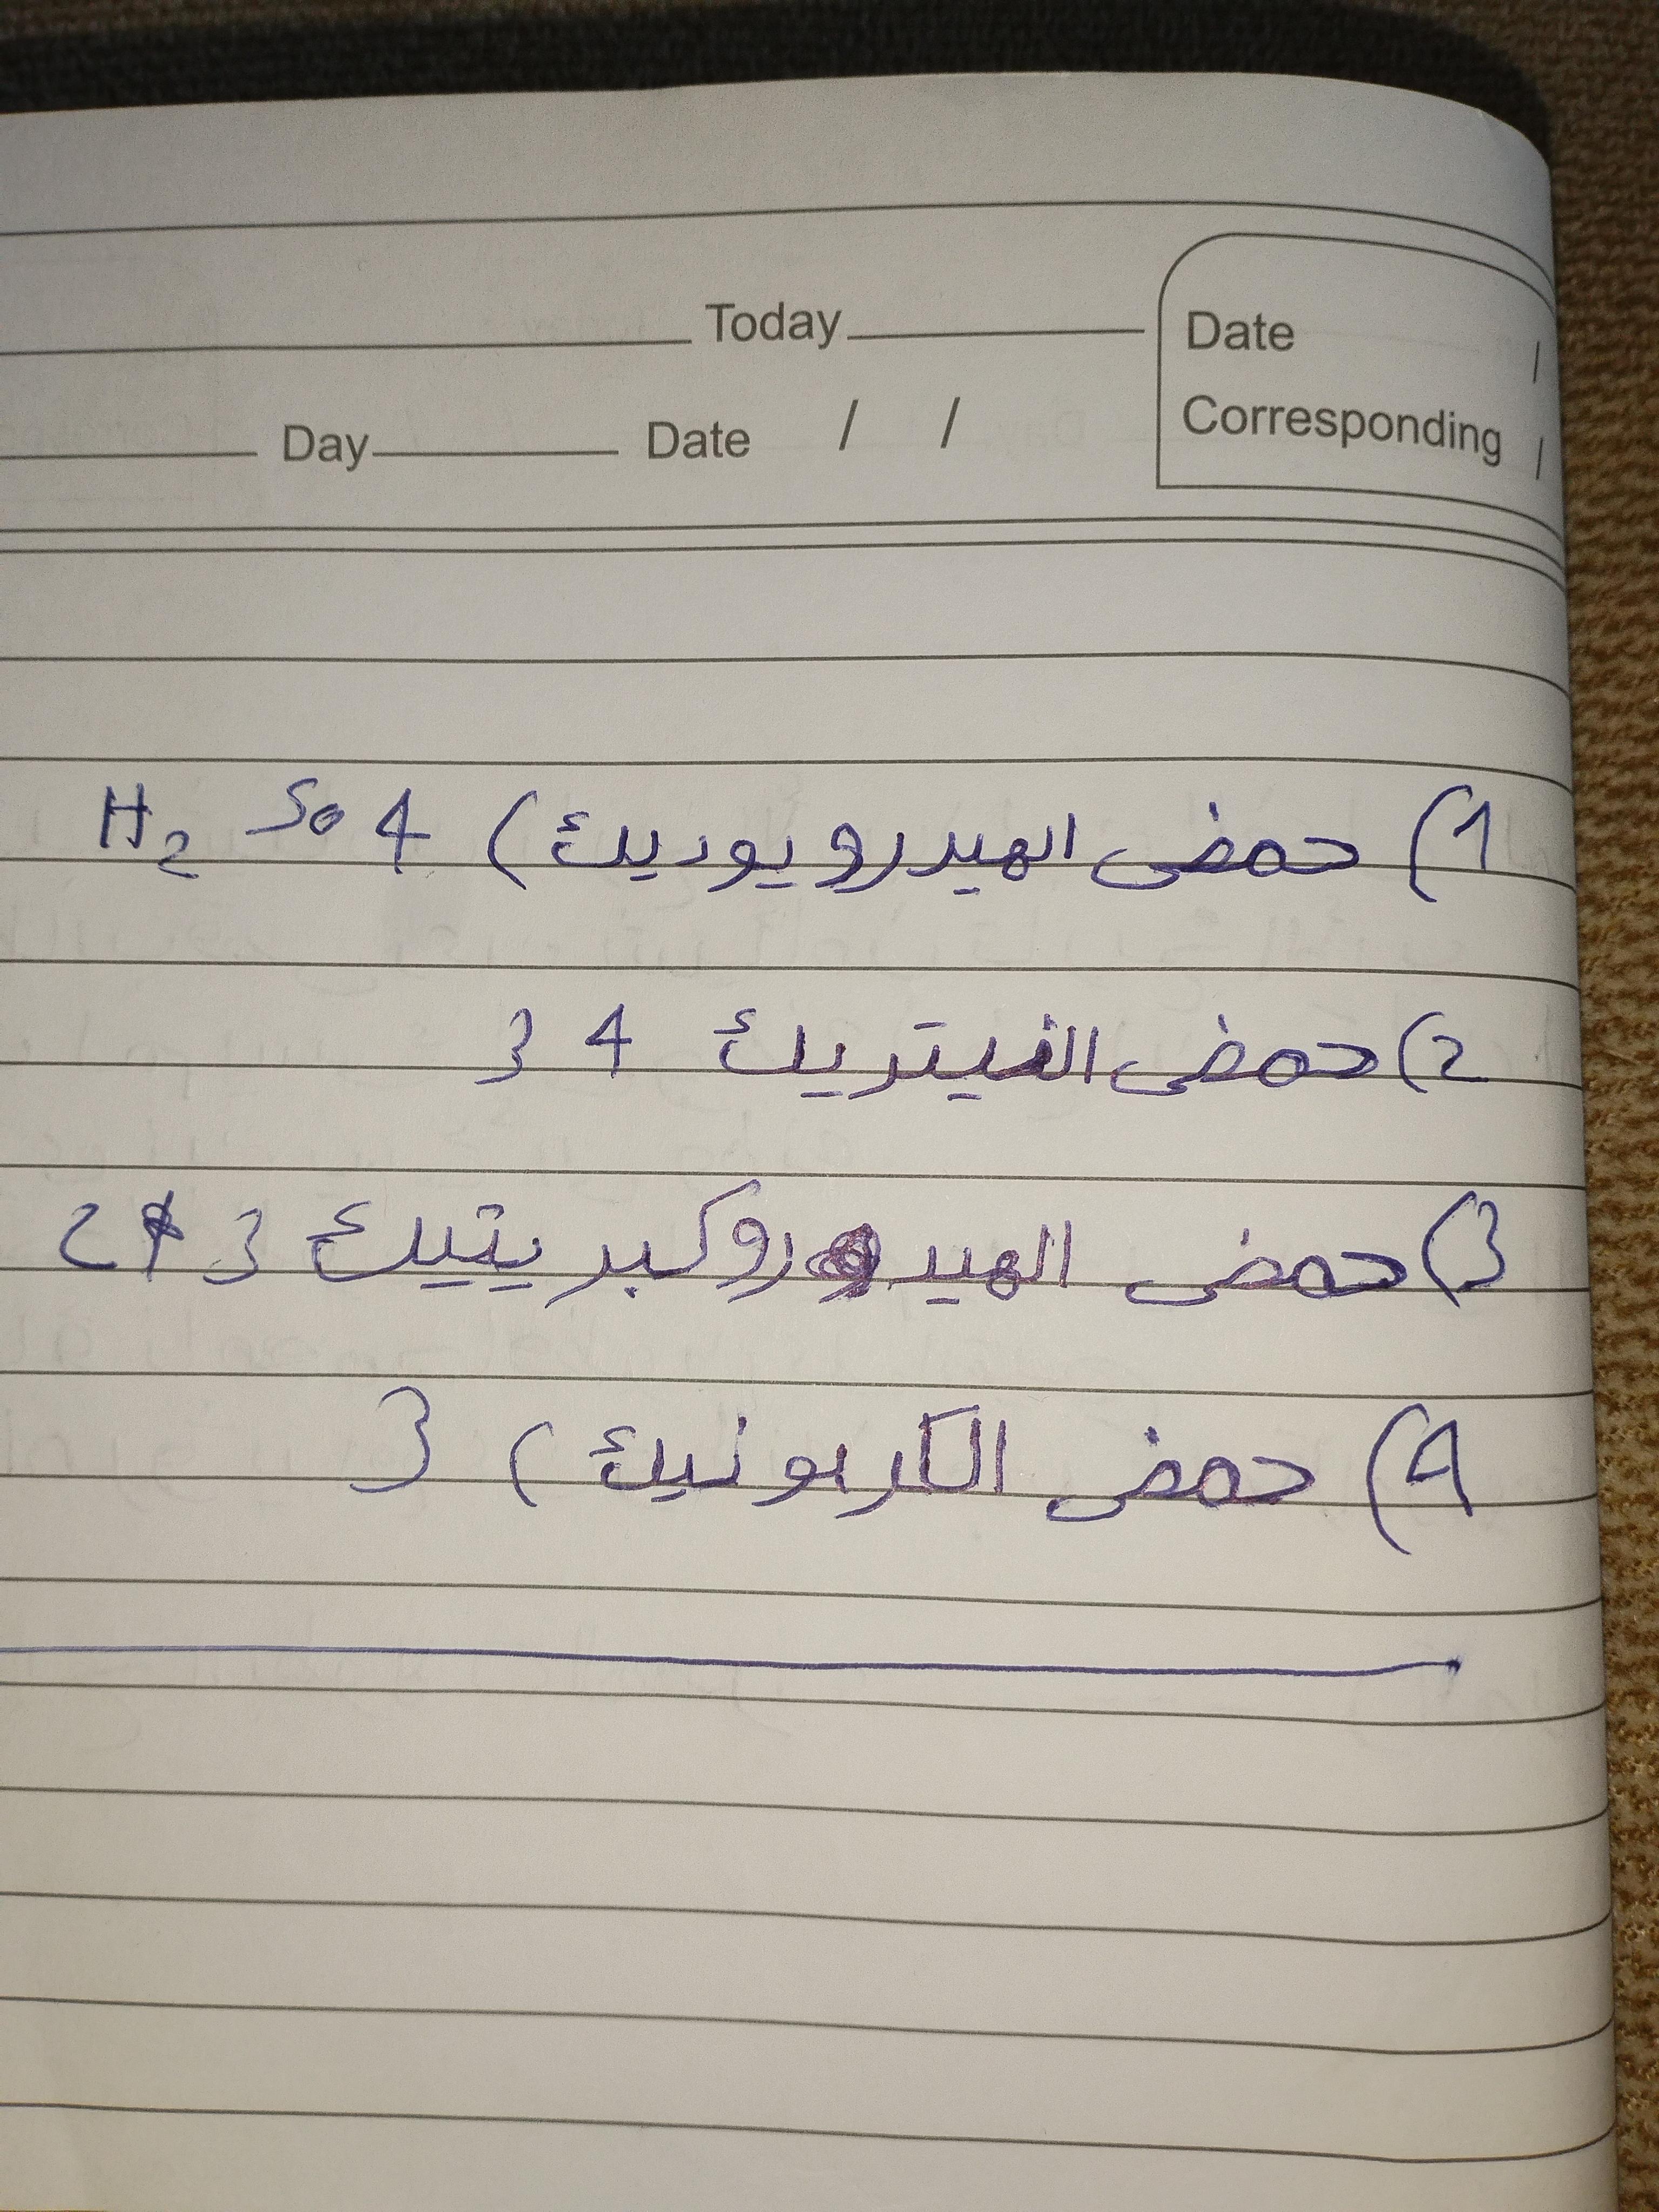 Today
Date /
Day Date / /
Corresponding /
1) حمض الهيدرويوديك) H2 So4
2) حمض النيتريك 4 3
3) حمض الهيدروكبريتيك 3 2
4) حمض الكربونيك) 3